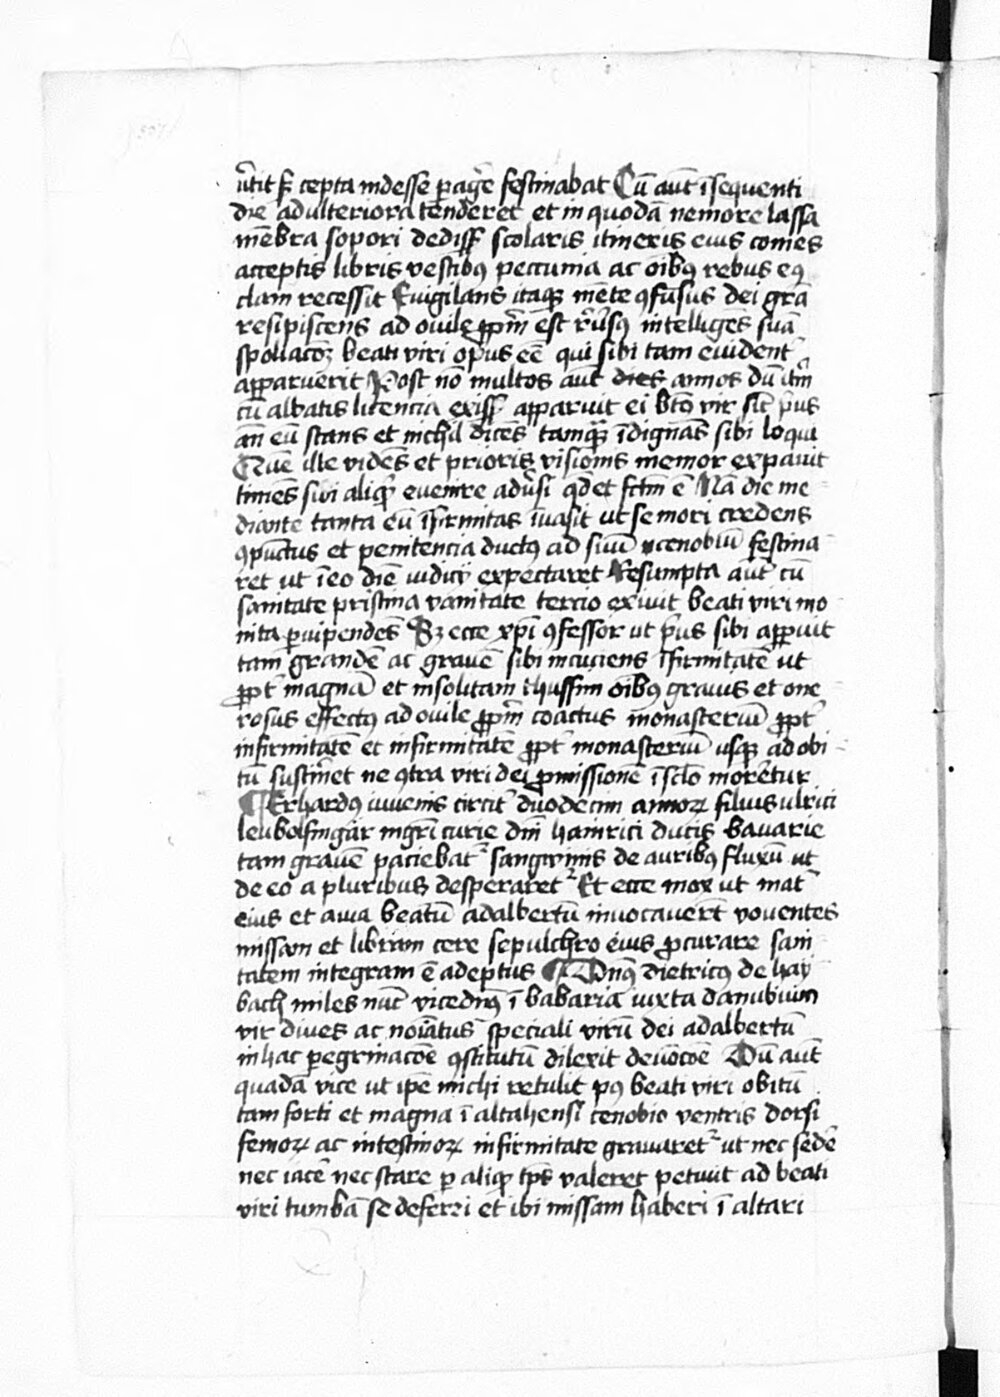 cepta indesse pag̃e festinabat Cũ aut̃ ĩsequenti
die ad ulteriora tenderet et in quodã nemore lassa
mẽbra sopori dediss̃ scolaris itineris eius comes
acceptis libris vestibꝰ peccunia ac oĩbꝰ rebus eꝰ
clam recessit Euigilans itaqꝫ mẽte ꝯfusus dei grã
resipiscens ad ouile ꝓpriũ est r̃ũsus intelligẽs suã
spoliacõꝫ beati viri opus eẽ qui sibi tam euident̾
apparuerit Post nõ multos aut̃ dies annos dũ itm̃
cũ albatis licencia exiss̃ apparuit ei bt̃us vir sic̃ p̃us
añ eũ stans et nichil dicẽs tamquã ĩdignãs sibi loqui
Quẽ ille vidẽs et prioris visionis memor expauit
timẽs sui aliqͥd euenire adũsi qd̃ et fc̃tm ẽ Nã die me
diante tanta eũ ĩfirmitas ĩuasit ut se mori credens
ꝯpunctus et penitencia ductꝰ ad suũ cenobiũ festina
ret ut ĩ eo diẽ iudicij expectaret Resumpta aut̃ cũ
sanitate pristina vanitate tercio exiuit beati viri mo
nita ꝑuipendẽs Sꝫ ecce xp̃i ꝯfessor ut p̃us sibi apparuit
tam grandẽ ac grauẽ sibi incuciens ĩfirmitatẽ ut
ꝓpt̾ magnã et insolitam tussim oĩbꝰ grauis et one
rosus effectꝰ ad ouile ꝓpriũ coactus monasteriũ ꝓpt̾
infirmitatẽ et infirmitatẽ ꝓpt̾ monasteriũ usqꝫ ad obi
tũ sustinet ne ꝯtra viri dei ꝓmissionẽ ĩ sclõ morẽtur
¶ Erhardꝰ iuuenis circit̾ duodecim annoꝝ filius ulrici
leubolfingar mgr̃i curie dñi hainrici ducis bauarie
tam grauẽ paciebat̾ sangwinis de auribꝰ fluxũ ut
de eo a pluribus desperaret̾ Et ecce mox ut mat̾
eius et auia beatũ adalbertũ inuocauerũt vouentes
missam et libram cere sepulchro eius ꝓcurare sani
tatem integram ẽ adeptus ¶ Dnꝰ dietricꝰ de hay
bach miles nũc vicednꝰ ĩ babaria iuxta danubium
vir diues ac noiãtus speciali virũ dei adalbertũ
in hac ꝑegrinacõe ꝯstitutũ dilexit deuocõe Dũ aut̃
quadã vice ut ip̃e michi retulit pꝰ beati viri obitũ
tam forti et magna ĩ altahensi cenobio ventris dorsi
femoꝝ ac intestinoꝝ infirmitate grauaret̾ ut nec sedẽ
nec iacẽ nec stare ꝑ aliqͥd tp̃s valeret petiuit ad beati
viri tumbã se deferri et ibi missam haberi ĩ altari